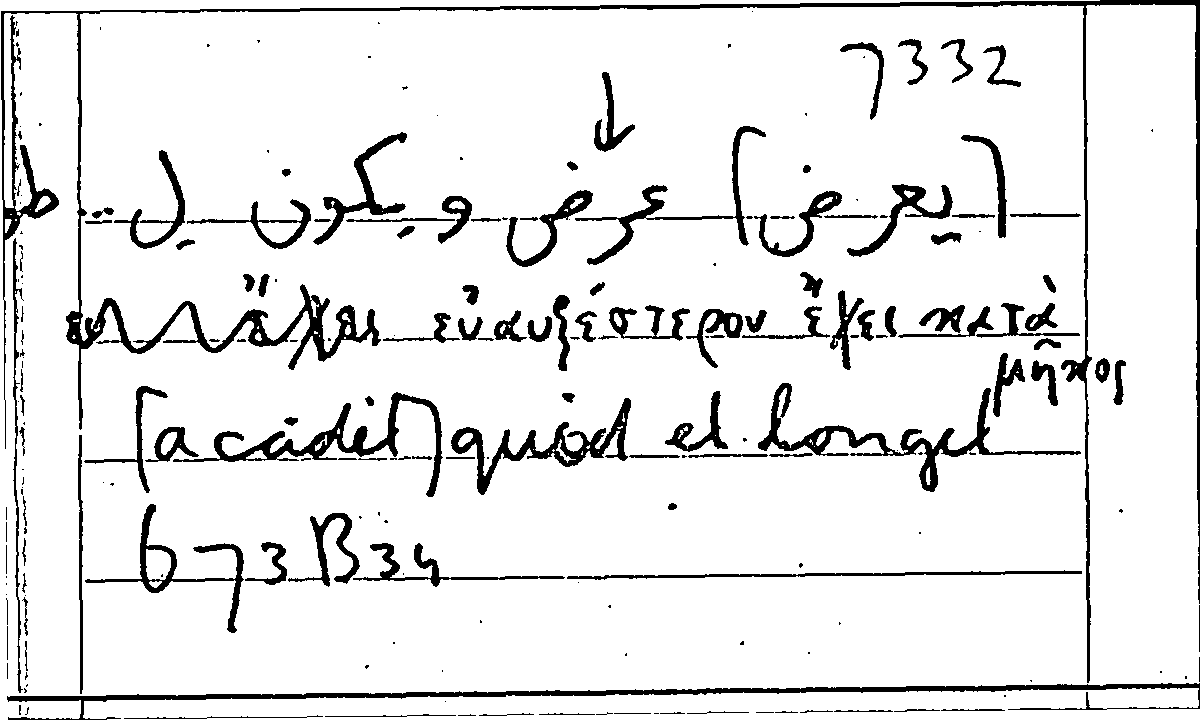 7332
[يعرض] عرض ويكون ل... طو
εὐαυξέστερον ἔχει κατὰ
μῆκος
[acādit] quod et longet
673B34